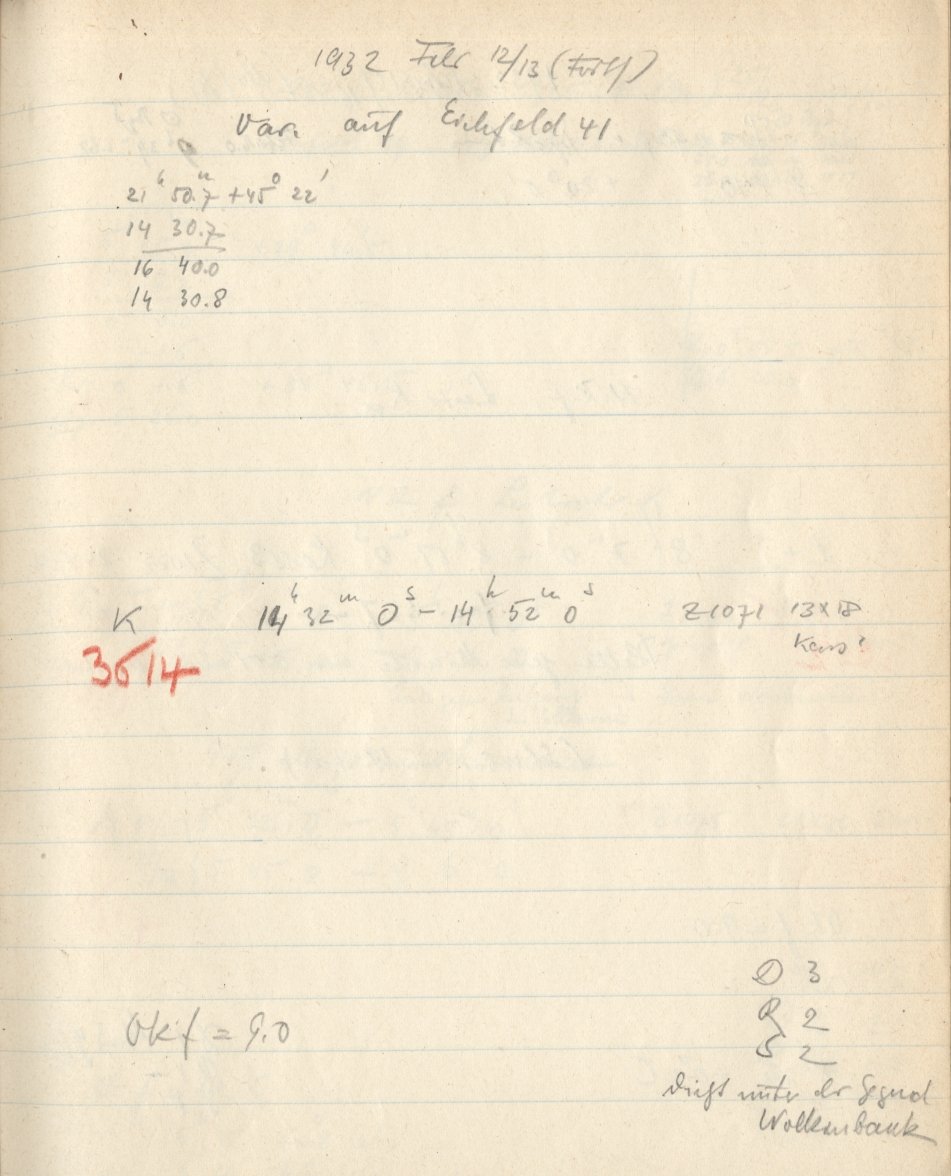 1932 Febr 12/13 (Forts)
Var. auf Eichfeld 41
21ʰ 50.7ᵐ +45° 22'
14 30.7
16 40.0
14 30.8
K 14ʰ 32ᵐ 0ˢ – 14ʰ 52ᵐ 0ˢ Z1071 13x18
3614
Okf = 9.0
D 3
R 2
S 2
dicht unter der Gegend
Wolkenbank